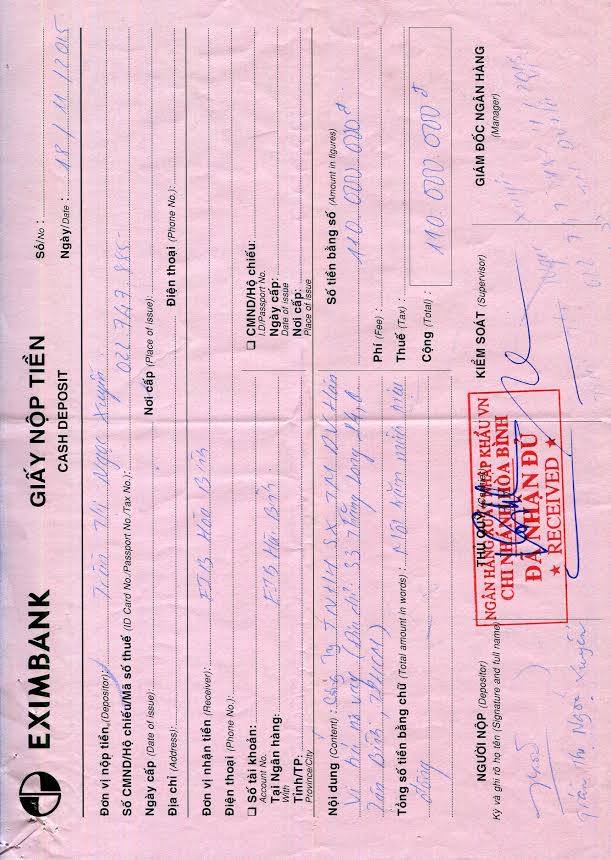 EXIMBANK
GIẤY NỘP TIỀN
CASH DEPOSIT
Số/No :
Ngày/Date : 18/11/2015
Đơn vị nộp tiền (Depositor): Trần Thị Ngọc Xuyến
Số CMND/Hộ chiếu/Mã số thuế (ID Card No./Passport No./Tax No.): 022 747 885
Ngày cấp (Date of issue): Nơi cấp (Place of issue):
Địa chỉ (Address): Điện thoại (Phone No.):
Đơn vị nhận tiền (Receiver): EIB Hòa Bình
Điện thoại (Phone No.):
❑ Số tài khoản:
Account No.
Tại Ngân hàng: EIB Hòa Bình
With
Tỉnh/TP:
Province/City
❑ CMND/Hộ chiếu:
I.D/Passport No.
Ngày cấp:
Date of issue
Nơi cấp:
Place of issue
Nội dung (Content) : Công Ty TNHH SX TM DV Hân
Vi trả nợ vay (Địa chỉ: 33 Thăng Long, P4, Q
Tân Bình, TPHCM)
Tổng số tiền bằng chữ (Total amount in words) : Một trăm mười triệu
đồng
Số tiền bằng số (Amount in figures)
110.000.000đ
Phí (Fee) :
Thuế (Tax) :
Cộng (Total) : 110.000.000đ
NGƯỜI NỘP (Depositor)
Ký và ghi rõ họ tên (Signature and full name)
THỦ QUỸ (Cashier)
KIỂM SOÁT (Supervisor)
GIÁM ĐỐC NGÂN HÀNG
(Manager)
NGÂN HÀNG XUẤT NHẬP KHẨU VN
CHI NHÁNH HÒA BÌNH
ĐÃ NHẬN ĐỦ
★ RECEIVED ★
Trần Thị Ngọc Xuyến